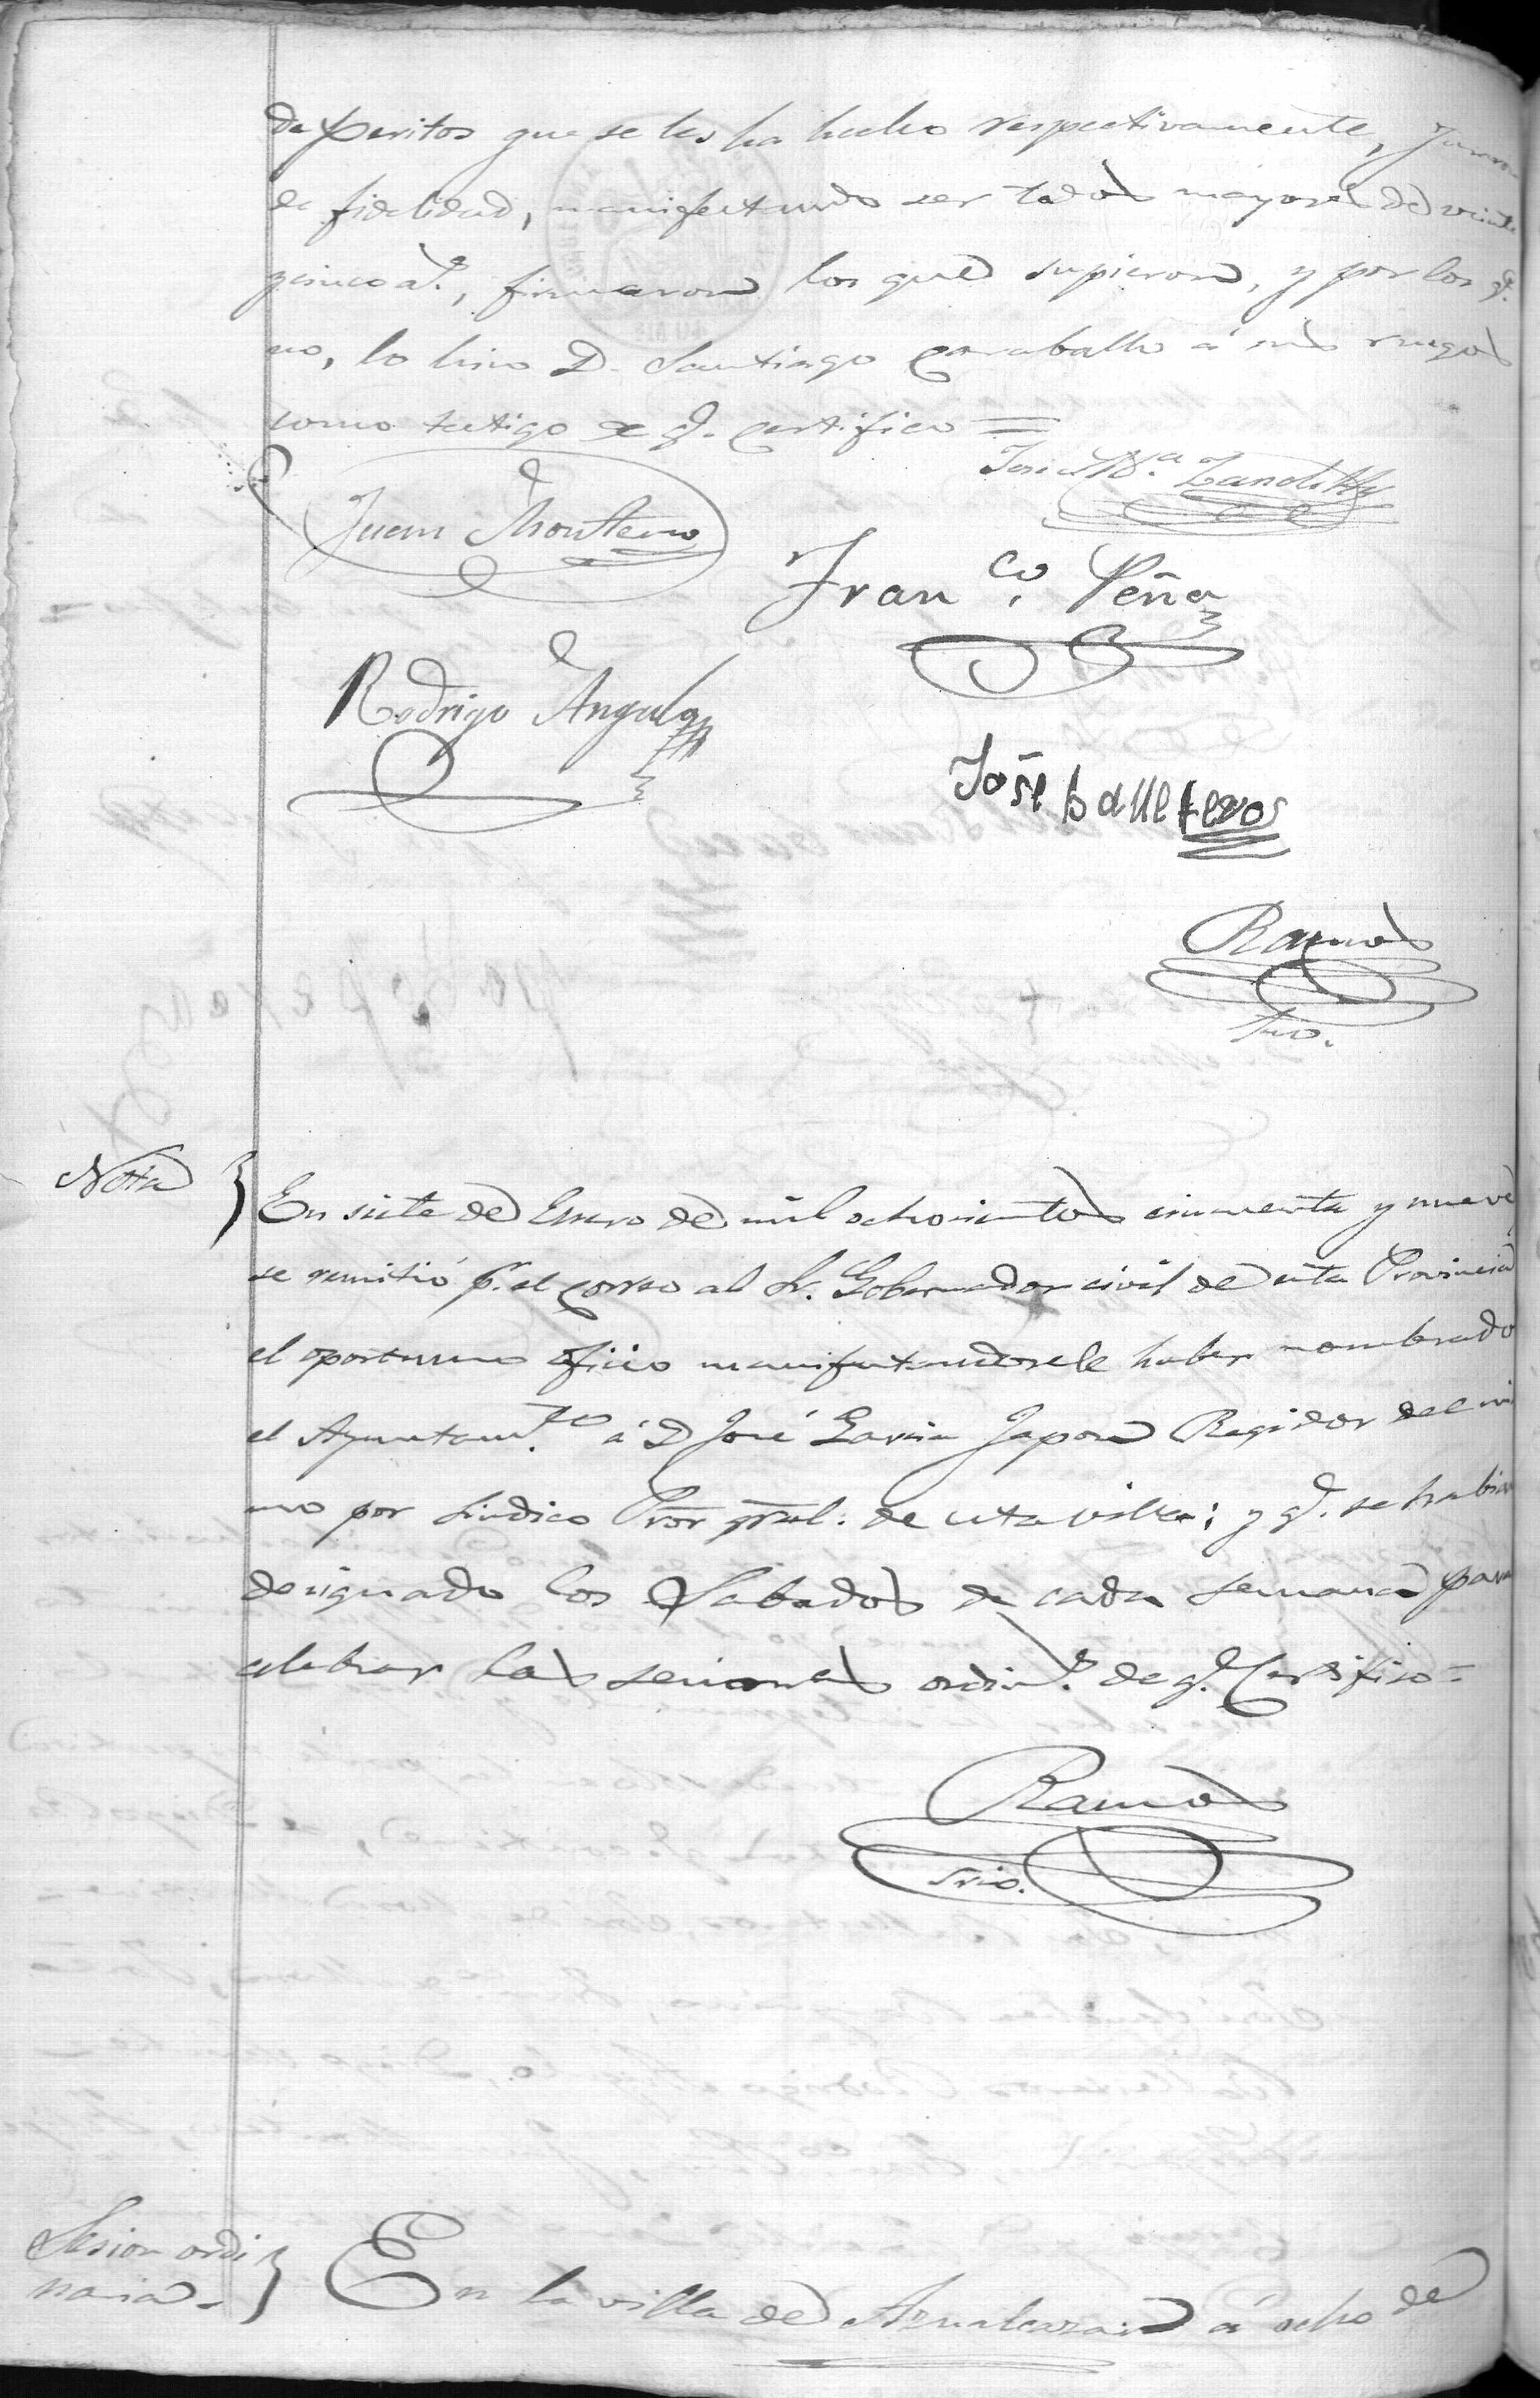 de peritos que se les ha hecho respectivamente, juraron
de fidelidad, manifestando ser todos mayores de veinte
y cinco a.s, firmaron los que supieron, y por los q.e
no, lo hizo D. Santiago Caraballo á sus ruegos
como testigo de q.e certifico =
José M.a
Juan Montero
Fran.co Peña
Rodrigo Angulo
José ballesteros
Ramos
Srio.
Nota }
En siete de Enero de mil ochocientos cincuenta y nueve
se remitió p.r el correo al Sr. Gobernador civil de esta Provincia
el oportuno oficio manifestandosele haber nombrado
el Ayuntam.to á D José Garcia Japon Regidor del mis
mo por Sindico Pror gral. de esta villa; y q.e se habian
designado los Sabados de cada semana para
celebrar las sesiones ordin.s de q.e Certifico =
Ramos
Srio.
Sesion ordi
naria. }
En la villa de Aznalcazar á ocho de